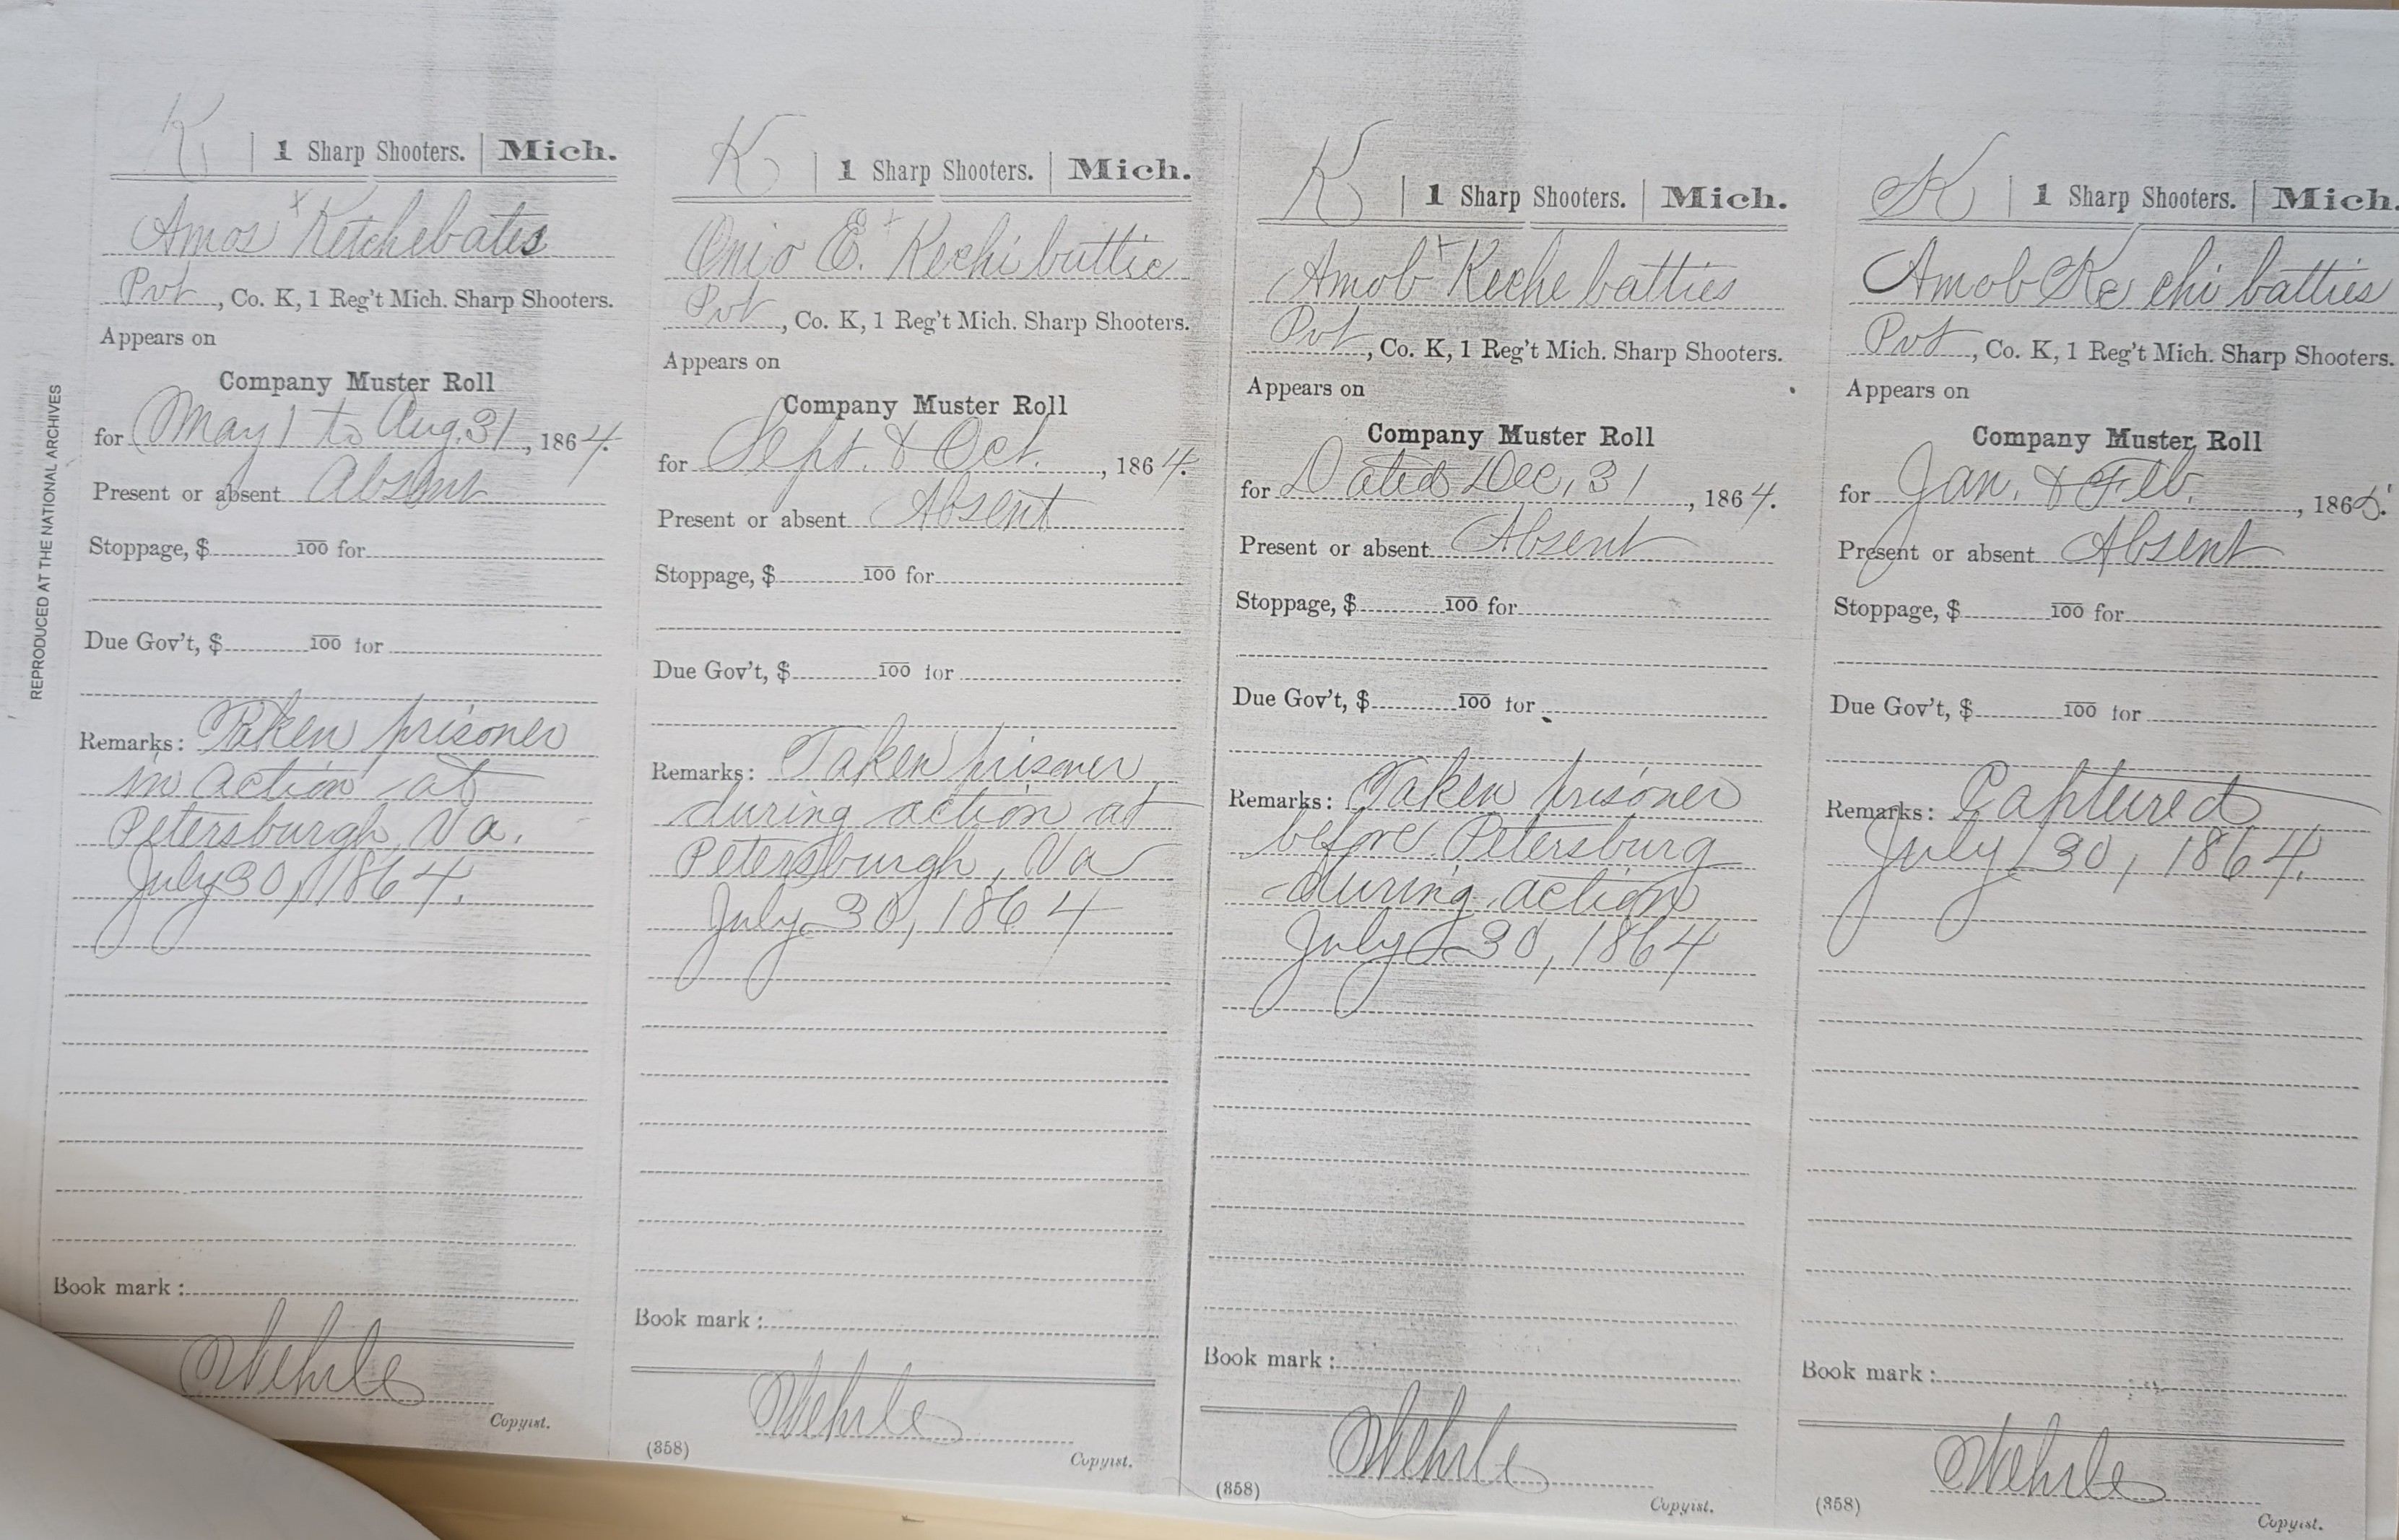 REPRODUCED AT THE NATIONAL ARCHIVES
K | 1 Sharp Shooters. | Mich.
Amos x Ketchebates
Pvt, Co. K, 1 Reg't Mich. Sharp Shooters.
Appears on
Company Muster Roll
for May 1 to Aug. 31, 1864.
Present or absent Absent
Stoppage, $ 100 for
Due Gov't, $ 100 for
Remarks: Taken prisoner
in action at
Petersburgh, Va.
July 30, 1864.
Book mark:
Wehrle
Copyist.
K | 1 Sharp Shooters. | Mich.
Onio E. x Kechibattie
Pvt, Co. K, 1 Reg't Mich. Sharp Shooters.
Appears on
Company Muster Roll
for Sept. & Oct., 1864.
Present or absent Absent
Stoppage, $ 100 for
Due Gov't, $ 100 for
Remarks: Taken prisoner
during action at
Petersburgh, Va
July 30, 1864
Book mark:
Wehrle
(358) Copyist.
K | 1 Sharp Shooters. | Mich.
Amob x Keche batties
Pvt, Co. K, 1 Reg't Mich. Sharp Shooters.
Appears on
Company Muster Roll
for Dated Dec. 31, 1864.
Present or absent Absent
Stoppage, $ 100 for
Due Gov't, $ 100 for
Remarks: Taken prisoner
before Petersburg
during action
July 30, 1864
Book mark:
Wehrle
(358) Copyist.
K | 1 Sharp Shooters. | Mich.
Amob Ke chi batties
Pvt, Co. K, 1 Reg't Mich. Sharp Shooters.
Appears on
Company Muster Roll
for Jan. & Feb., 1865.
Present or absent Absent
Stoppage, $ 100 for
Due Gov't, $ 100 for
Remarks: Captured
July 30, 1864.
Book mark:
Wehrle
(358) Copyist.